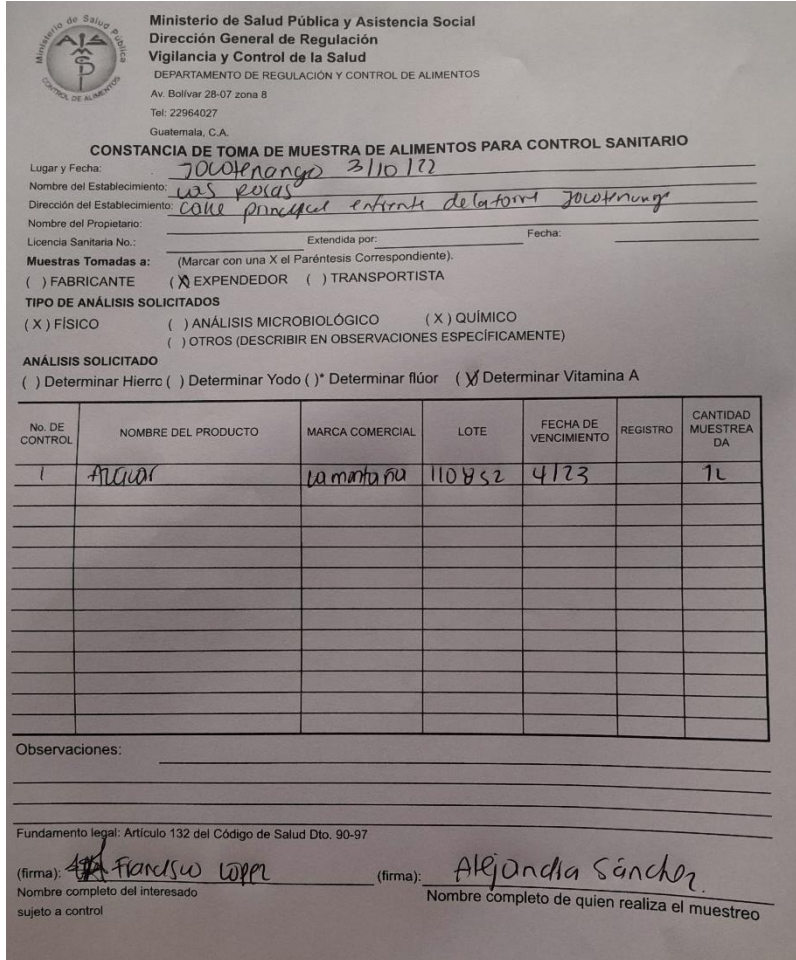 Ministerio de Salud Pública
CONTROL DE ALIMENTOS
Ministerio de Salud Pública y Asistencia Social
Dirección General de Regulación
Vigilancia y Control de la Salud
DEPARTAMENTO DE REGULACIÓN Y CONTROL DE ALIMENTOS
Av. Bolívar 28-07 zona 8
Tel: 22964027
Guatemala, C.A.
CONSTANCIA DE TOMA DE MUESTRA DE ALIMENTOS PARA CONTROL SANITARIO
Lugar y Fecha: Jocotenango 3/10/22
Nombre del Establecimiento: Las Rosas
Dirección del Establecimiento: calle principal enfrente de la torre Jocotenango
Nombre del Propietario:
Licencia Sanitaria No.: Extendida por: Fecha:
Muestras Tomadas a: (Marcar con una X el Paréntesis Correspondiente).
( ) FABRICANTE (X) EXPENDEDOR ( ) TRANSPORTISTA
TIPO DE ANÁLISIS SOLICITADOS
( X ) FÍSICO ( ) ANÁLISIS MICROBIOLÓGICO ( X ) QUÍMICO
( ) OTROS (DESCRIBIR EN OBSERVACIONES ESPECÍFICAMENTE)
ANÁLISIS SOLICITADO
( ) Determinar Hierro ( ) Determinar Yodo ( )* Determinar flúor (X) Determinar Vitamina A
No. DE CONTROL NOMBRE DEL PRODUCTO MARCA COMERCIAL LOTE FECHA DE VENCIMIENTO REGISTRO CANTIDAD MUESTREADA
1 Azúcar La montaña 110852 4/23 1L
Observaciones:
Fundamento legal: Artículo 132 del Código de Salud Dto. 90-97
(firma): Francisco López (firma): Alejandra Sánchez.
Nombre completo del interesado Nombre completo de quien realiza el muestreo
sujeto a control